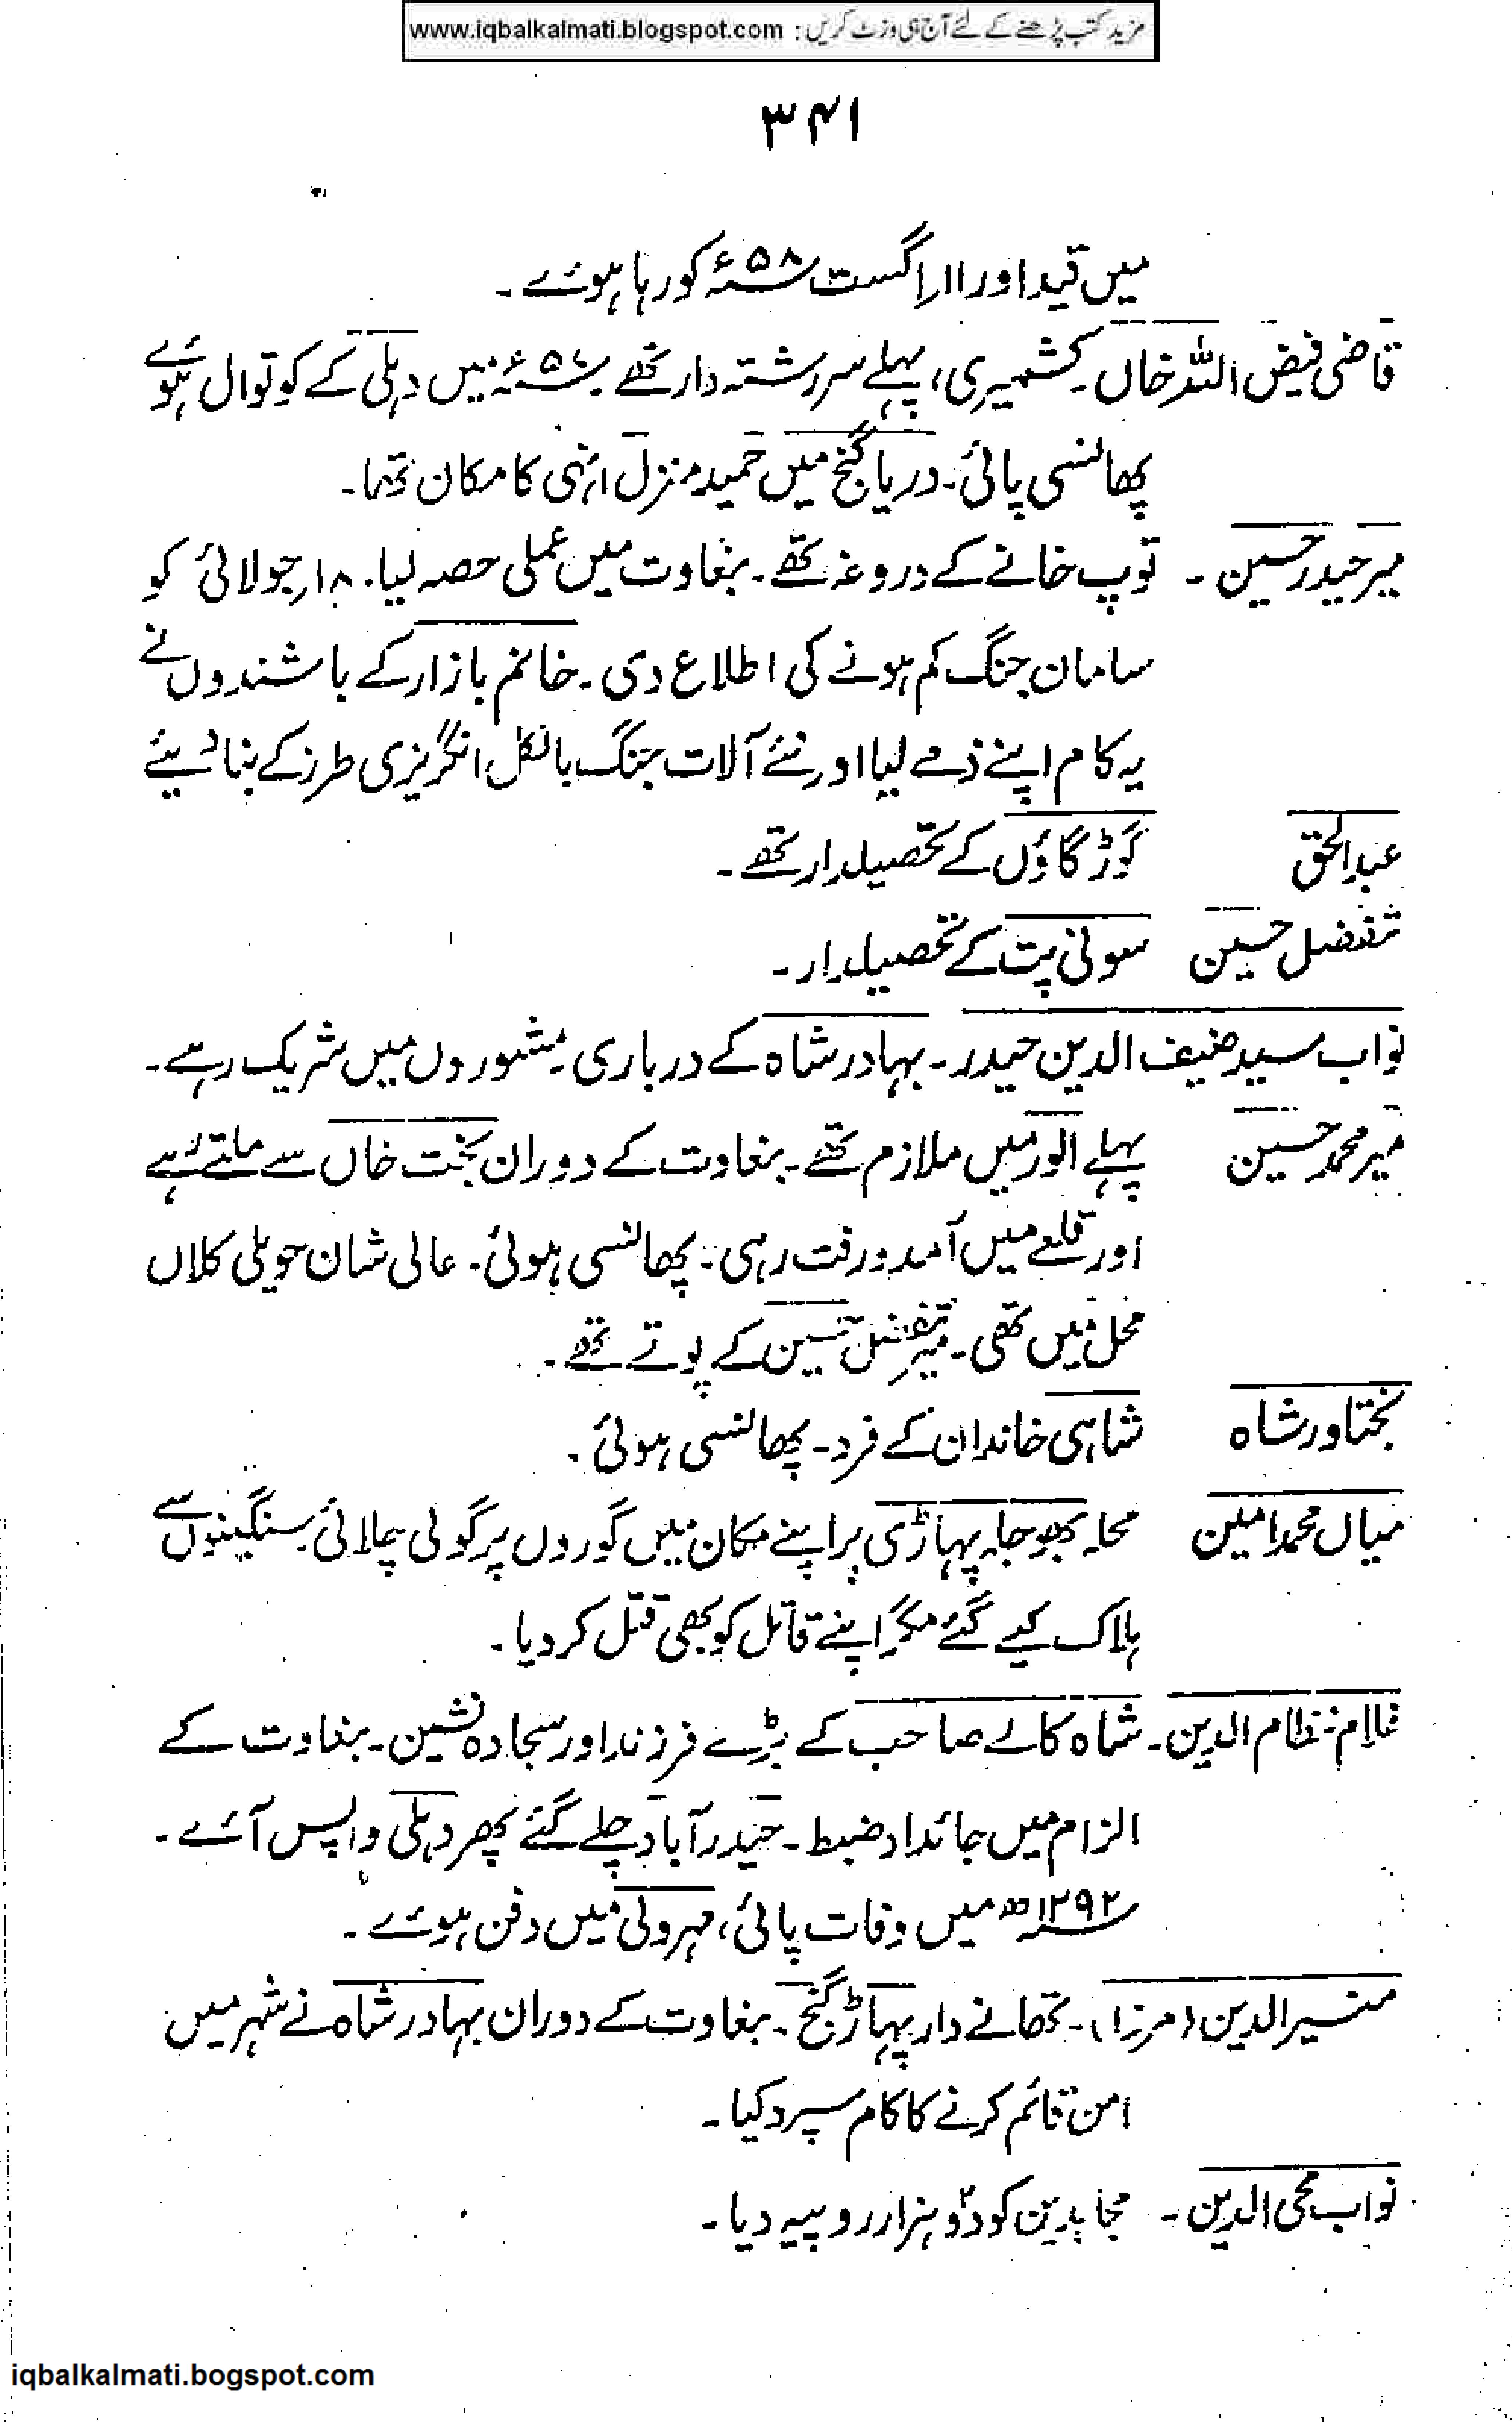 مزید کتب پڑھنے کے لئے آج ہی وزٹ کریں : www.iqbalkalmati.blogspot.com
۳۴۱
میں قید اور ۱۱ر اگست ۵۸ء کو رہا ہوئے۔
قاضی فیض اللہ خاں۔ کشمیری، پہلے سررشتہ دار تھے۔ ۵۷ء میں دہلی کے کوتوال ہوئے
پھانسی پائی۔ دریا گنج میں حمید منزل انہی کا مکان تھا۔
میر حیدر حسین ۔ توپ خانے کے دروغہ تھے۔ بغاوت میں عملی حصہ لیا۔ ۱۸ر جولائی کو
سامان جنگ کم ہونے کی اطلاع دی۔ خانم بازار کے باشندوں نے
یہ کام اپنے ذمے لیا اور نئے آلات جنگ بالکل انگریزی طرز کے بنا دیئے
عبدالحق گوڑ گاؤں کے تحصیلدار تھے۔
تفضل حسین سونی پت کے تحصیلدار۔
نواب سید ضیف الدین حیدر۔ بہادر شاہ کے درباری۔ مشوروں میں شریک رہے۔
میر محمد حسین پہلے الور میں ملازم تھے۔ بغاوت کے دوران بخت خاں سے ملتے رہے
اور قلعے میں آمد و رفت رہی۔ پھانسی ہوئی۔ عالی شان حویلی کلاں
محل میں تھی۔ میر تفضل حسین کے پوتے تھے۔
بختاور شاہ شاہی خاندان کے فرد۔ پھانسی ہوئی۔
میاں محمد امین محلہ بھوجلہ پہاڑی پر اپنے مکان میں گوروں پر گولی چلائی۔ سنگینوں سے
ہلاک کیے گئے مگر اپنے قاتل کو بھی قتل کر دیا۔
غلام نظام الدین۔ شاہ کالے صاحب کے بڑے فرزند اور سجادہ نشین۔ بغاوت کے
الزام میں جائداد ضبط۔ حیدر آباد چلے گئے پھر دہلی واپس آئے۔
۱۲۹۲ھ میں وفات پائی، مہرولی میں دفن ہوئے۔
منیر الدین (مرزا)۔ تھانے دار پہاڑ گنج۔ بغاوت کے دوران بہادر شاہ نے شہر میں
امن قائم کرنے کا کام سپرد کیا۔
نواب محی الدین۔ مجاہدین کو دو ہزار روپیہ دیا۔
iqbalkalmati.bogspot.com